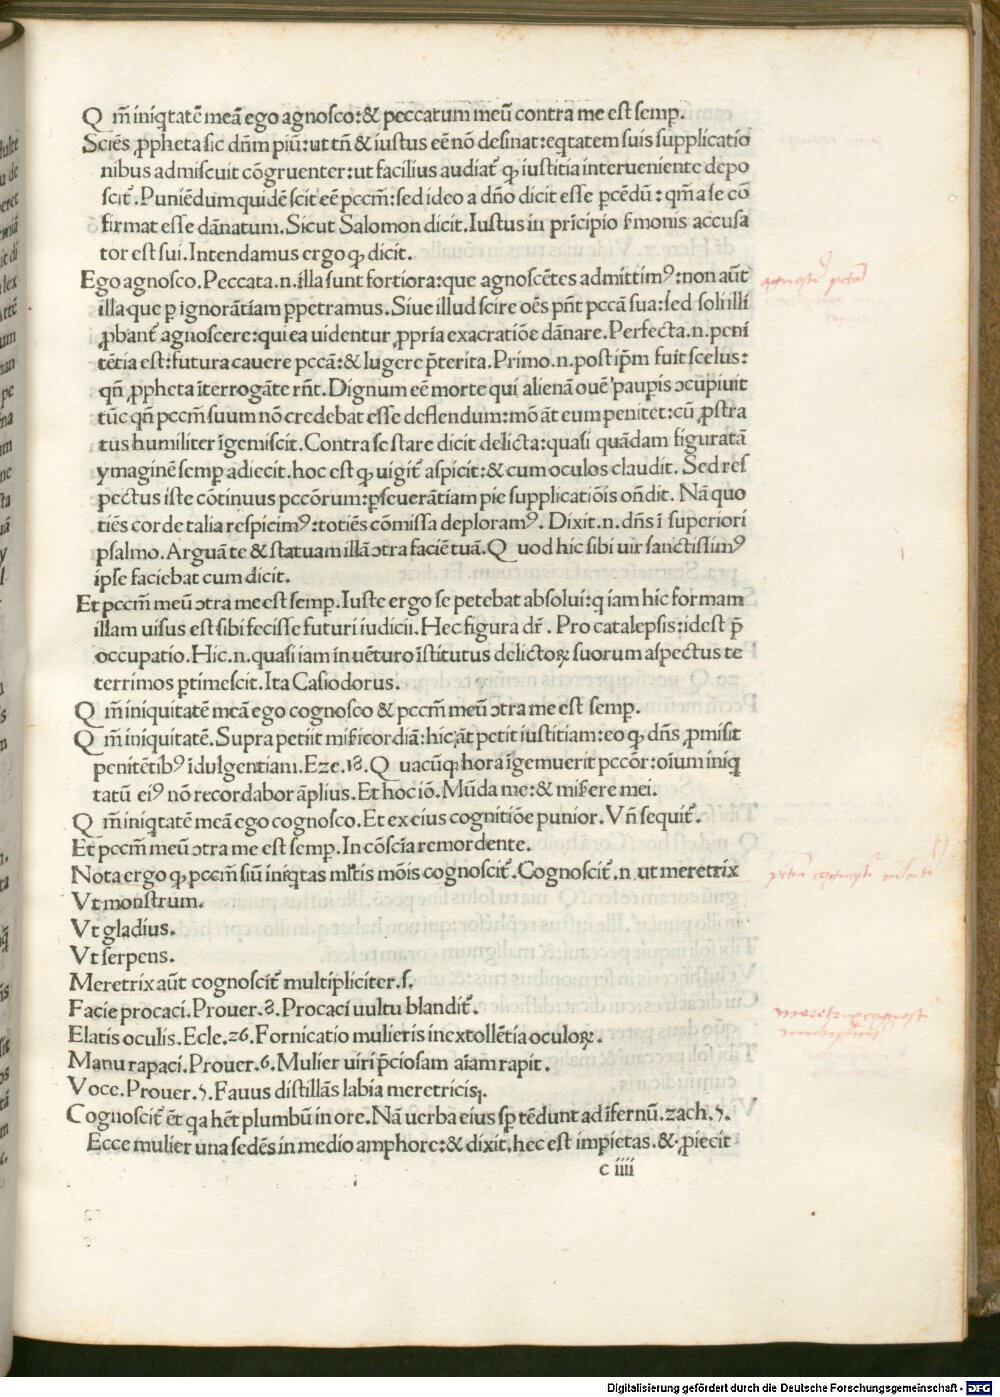 Q m̄ iniq̇tatē meā ego agnosco:& peccatum meū contra me est semꝑ.
Sciēs ꝓpheta sic dn̄m piū:ut tn̄ & iustus eē nō desinat:eq̇tatem suis supplicatio
nibus admiscuit cōgruenter:ut facilius audiat᷑ ꝙ iustitia interueniente depo
scit᷑. Puniēdum quidē scit eē pccm̄:sed ideo a dn̄o dicit esse ꝑcēdū: qm̄ a se cō
firmat esse dānatum. Sicut Salomon dicit. Iustus in prīcipio ẜmonis accusa
tor est sui. Intendamus ergo ꝙ dicit.
Ego agnosco. Peccata.n.illa sunt fortiora:que agnoscētes admittimꝰ:non aūt
illa que ꝑ ignorātiam ꝑpetramus. Siue illud scire oēs pn̄t pccā sua:sed soli illi
ꝓbant᷑ agnoscere:qui ea uidentur ꝓpria exacratiōe dānare. Perfecta.n.peni
tētia est:futura cauere pccā:& lugere p̄terita. Primo.n.post ip̄m fuit scelus:
qn̄ ꝓpheta īterrogāte rn̄t. Dignum eē morte qui alienā ouē paupīs ↄcupiuit
tūc qn̄ pccm̄ suum nō credebat esse deflendum:mō āt eum penitet:cū ꝓstra
tus humiliter īgemiscit. Contra se stare dicit delicta:quasi quādam figuratā
ymaginē semꝑ adiecit.hoc est ꝙ uigit᷑ aspicit:& cum oculos claudit. Sed res
pectus iste cōtinuus pccōrum:ꝑseuerātiam pie supplicatiōis on̄dit. Nā quo
tiēs corde talia respicimꝰ:totiēs cōmissa deploramꝰ. Dixit.n.dn̄s ī superiori
psalmo. Arguā te & statuam illā ↄtra faciē tuā. Q uod hic sibi uir sanctissimꝰ
ipse faciebat cum dicit.
Et pccm̄ meū ↄtra me est semꝑ. Iuste ergo se petebat absolui:q iam hic formam
illam uisus est sibi fecisse futuri iudicii. Hec figura dr̄. Pro catalepsis:idest p̄
occupatio. Hic.n.quasi iam in uēturo īstitutus delictoꝝ suorum aspectus te
terrimos ꝑtimescit. Ita Casiodorus.
Q m̄ iniquitatē meā ego cognosco & pccm̄ meū ↄtra me est semꝑ.
Q m̄ iniquitatē. Supra petiit miẜicordiā:hic āt petit iustitiam:eo ꝙ dn̄s ꝓmisit
penitētibꝰ īdulgentiam. Eze.18. Q uacūqꝫ hora īgemuerit pccōr:oīum iniq̇
tatū eiꝰ nō recordabor āplius. Et hoc iō. Mūda me:& miẜere mei.
Q m̄ iniq̇tatē meā ego cognosco. Et ex eius cognitiōe punior. Vn̄ sequit᷑.
Et pccm̄ meū ↄtra me est semꝑ. In cōscīa remordente.
Nota ergo ꝙ pccm̄ siū iniq̇tas ml̄tis mōis cognoscit᷑. Cognoscit᷑.n.ut meretrix
Vt monstrum.
Vt gladius.
Vt serpens.
Meretrix aūt cognoscit᷑ multipliciter.ſ.
Facie procaci. Prouer.8. Procaci uultu blandit᷑.
Elatis oculis. Ecle.26. Fornicatio mulieris in extollētia oculoꝝ.
Manu rapaci. Prouer.6. Mulier uiri p̄ciosam aīam rapit.
Voce. Prouer.5. Fauus distillās labia meretricis.
Cognoscit᷑ ēt qa hēt plumbū in ore. Nā uerba eius sꝑ tēdunt ad īfernū. zach.5.
Ecce mulier una sedēs in medio amphore:& dixit.hec est impietas.& ꝓiecit
c iiii
Digitalisierung gefördert durch die Deutsche Forschungsgemeinschaft - DFG